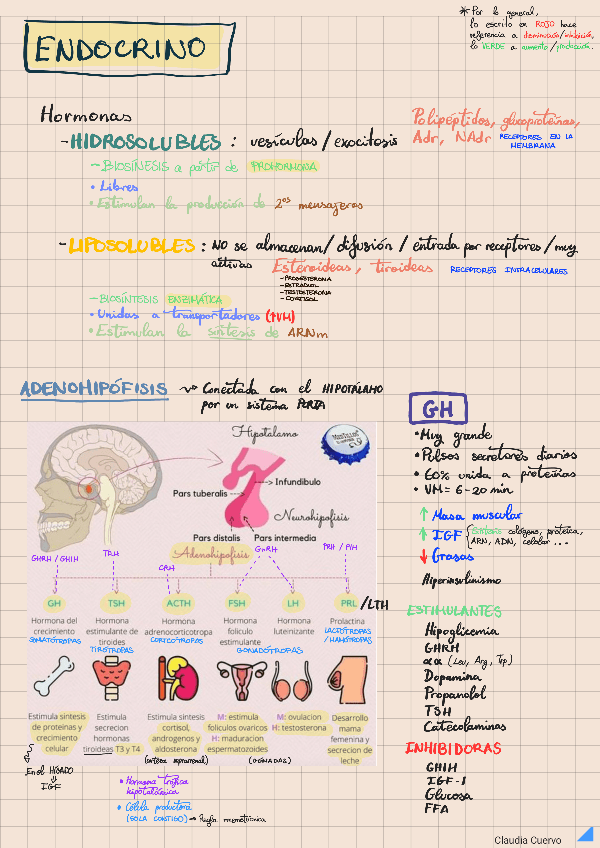 * Por lo general,
lo escrito en ROJO hace
referencia a disminución/inhibición,
lo VERDE a aumento/producción.
ENDOCRINO
Hormonas
- HIDROSOLUBLES : vesículas / exocitosis
Polipéptidos, glucoproteínas,
Adr, NAdr RECEPTORES EN LA
MEMBRANA
~ BIOSÍNESIS a partir de PROHORMONA
• Libres
• Estimulan la producción de 2os mensajeros
- LIPOSOLUBLES : NO se almacenan / difusión / entrada por receptores / muy
activas Esteroideas, tiroideas RECEPTORES INTRACELULARES
- PROGESTERONA
- ESTRADIOL
- TESTOSTERONA
- CORTISOL
~ BIOSÍNTESIS ENZIMÁTICA
• Unidas a transportadores (↑VM)
• Estimulan la síntesis de ARNm
ADENOHIPÓFISIS ~> Conectada con el HIPOTÁLAMO
por un sistema PORTA
Hipotalamo
Infundibulo
Pars tuberalis
Neurohipofisis
Pars distalis
Pars intermedia
Adenohipofisis
GHRH / GHIH
TRH
CRH
GnRH
PRH / PIH
GH
TSH
ACTH
FSH
LH
PRL /LTH
Hormona del
crecimiento
SOMATÓTROPAS
Hormona
estimulante de
tiroides
TIRÓTROPAS
Hormona
adrenocorticotropa
CORTICÓTROPAS
Hormona
foliculo
estimulante
Hormona
luteinizante
GONADÓTROPAS
Prolactina
LACTÓTROPAS
/ MAMÓTROPAS
Estimula sintesis
de proteinas y
crecimiento
celular
Estimula
secrecion
hormonas
tiroideas T3 y T4
Estimula sintesis
cortisol,
androgenos y
aldosterona
(corteza suprarrenal)
M: estimula
foliculos ovaricos
H: maduracion
espermatozoides
M: ovulacion
H: testosterona
(GÓNADAS)
Desarrollo
mama
femenina y
secrecion de
leche
En el HÍGADO
⇓
IGF
• Hormona trófica
hipotalámica
• Célula productora
(SOLA CONTIGO) → Regla mnemotécnica
GH
• Muy grande
• Pulsos secretores diarios
• 60% unida a proteínas
• VM = 6-20 min
↑ Masa muscular
↑ IGF { Síntesis colágeno, proteica,
ARN, ADN, celular ...
↓ Grasas
Hiperinsulinismo
ESTIMULANTES
Hipoglicemia
GHRH
αα (Leu, Arg, Trp)
Dopamina
Propanolol
TSH
Catecolaminas
INHIBIDORAS
GHIH
IGF-1
Glucosa
FFA
Claudia Cuervo